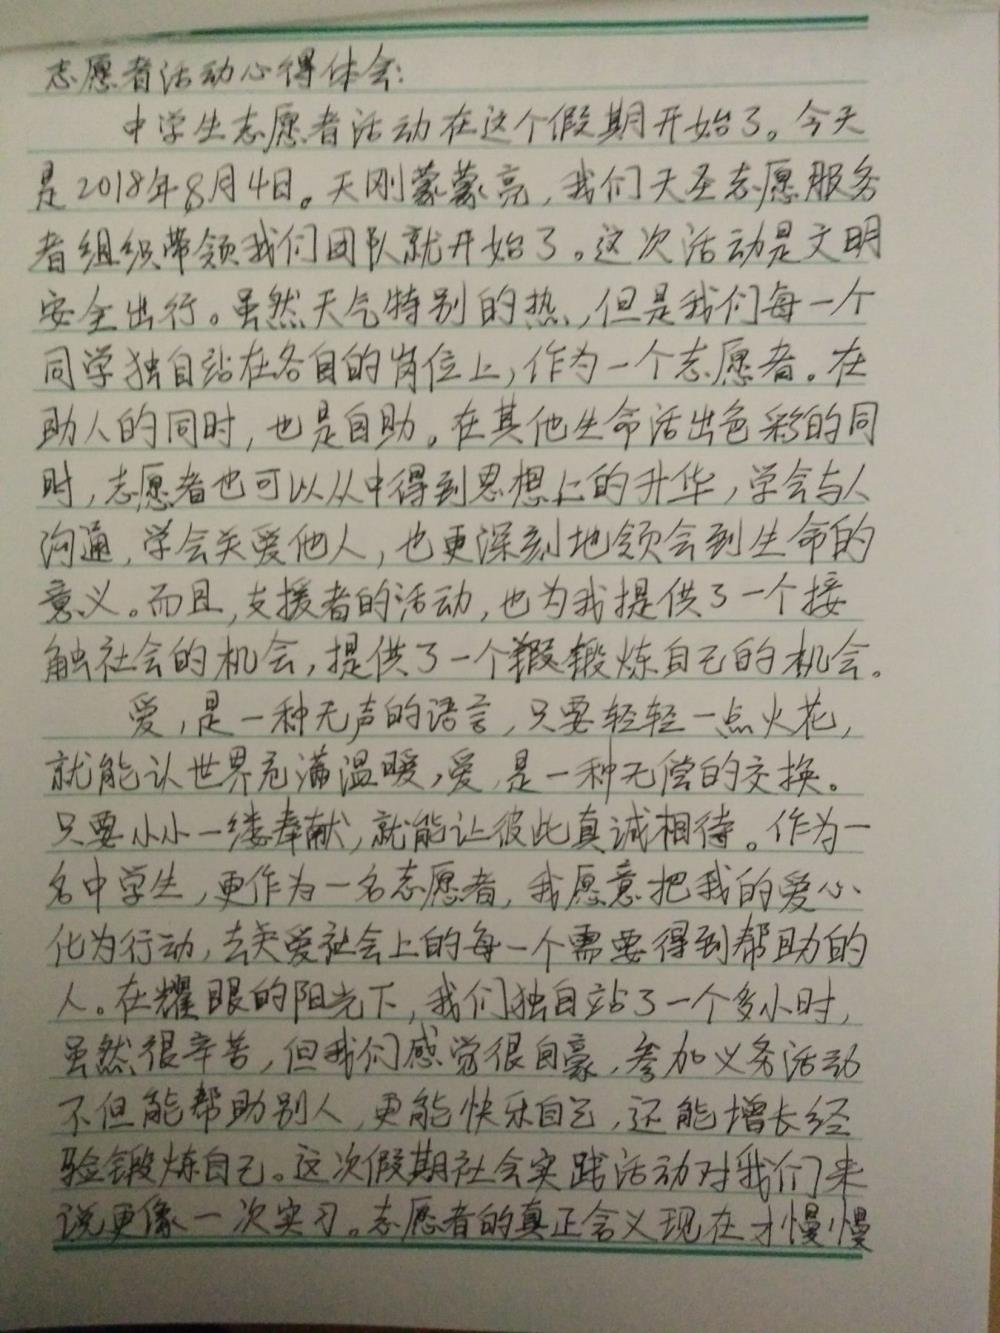 志愿者活动心得体会:
中学生志愿者活动在这个假期开始了。今天
是2018年8月4日。天刚蒙蒙亮，我们天圣志愿服务
者组织带领我们团队就开始了。这次活动是文明
安全出行。虽然天气特别的热，但是我们每一个
同学独自站在各自的岗位上，作为一个志愿者。在
助人的同时，也是自助。在其他生命活出色彩的同
时，志愿者也可以从中得到思想上的升华，学会与人
沟通，学会关爱他人，也更深刻地领会到生命的
意义。而且，支援者的活动，也为我提供了一个接
触社会的机会，提供了一个锻锻炼自己的机会。
爱，是一种无声的语言，只要轻轻一点火花，
就能认世界充满温暖，爱，是一种无偿的交换。
只要小小一缕奉献，就能让彼此真诚相待。作为一
名中学生，更作为一名志愿者，我愿意把我的爱心
化为行动，去关爱社会上的每一个需要得到帮助的
人。在耀眼的阳光下，我们独自站了一个多小时，
虽然很辛苦，但我们感觉很自豪，参加义务活动
不但能帮助别人，更能快乐自己，还能增长经
验锻炼自己。这次假期社会实践活动对我们来
说更像一次实习。志愿者的真正含义现在才慢慢